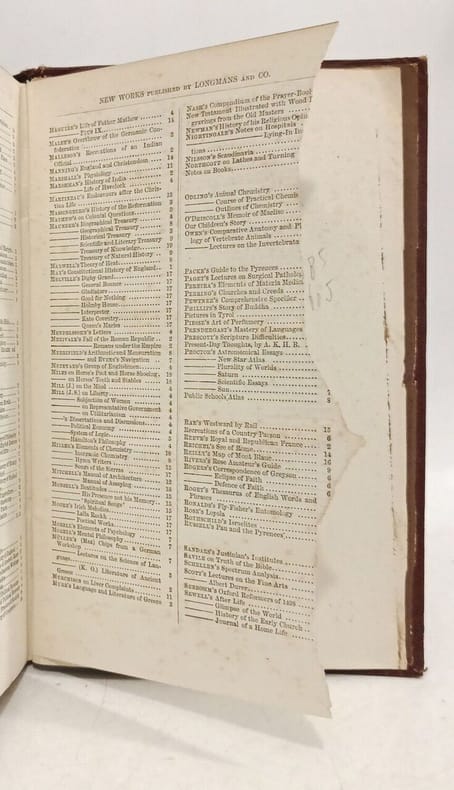 NEW WORKS PUBLISHED BY LONGMANS AND CO.
MAGUIRE'S Life of Father Mathew ........ 4
——— PIUS IX. ........ 14
MALET'S Overthrow of the Germanic Con-
federation ........ 2
MALLESON'S Recreations of an Indian
Official ........ 14
MANNING'S England and Christendom ........
MARSHALL'S Physiology ........
MARSHMAN'S History of India ........ 2
——— Life of Havelock ........ 4
MARTINEAU'S Endeavours after the Chris-
tian Life ........
MASSINGBERD'S History of the Reformation
MATHEWS on Colonial Questions ........
MAUNDER'S Biographical Treasury ........
——— Geographical Treasury ........
——— Historical Treasury ........
——— Scientific and Literary Treasury
——— Treasury of Knowledge ........
——— Treasury of Natural History ..
MAXWELL'S Theory of Heat ........
MAY'S Constitutional History of England ..
MELVILLE'S Digby Grand ........ 17
——— General Bounce ........ 17
——— Gladiators ........ 17
——— Good for Nothing ........ 17
——— Holmby House ........ 17
——— Interpreter ........ 17
——— Kate Coventry ........ 17
——— Queen's Maries ........ 17
MENDELSSOHN'S Letters ........ 4
MERIVALE'S Fall of the Roman Republic .. 2
——— Romans under the Empire 2
MERRIFIELD'S Arithmetic and Mensuration
——— and EVERS'S Navigation .. 7
METEYARD'S Group of Englishmen ........ 4
MILES on Horse's Foot and Horse Shoeing.
——— on Horses' Teeth and Stables
MILL (J.) on the Mind ........
MILL (J. S.) on Liberty ........ 4
——— Subjection of Women ........ 4
——— on Representative Government 4
——— on Utilitarianism ........ 4
———'s Dissertations and Discussions ........ 4
——— Political Economy ........ 4
——— System of Logic ........
——— Hamilton's Philosophy ........
MILLER'S Elements of Chemistry ........
——— Inorganic Chemistry ........
——— Hymn Writers ........
——— Songs of the Sierras ........
MITCHELL'S Manual of Architecture ........
——— Manual of Assaying ........
MONSELL'S Beatitudes ........
——— His Presence not his Memory ..
——— 'Spiritual Songs' ........
MOORE'S Irish Melodies ........
——— Lalla Rookh ........
——— Poetical Works ........
MORELL'S Elements of Psychology ........
MORELL'S Mental Philosophy ........
MÜLLER'S (Max) Chips from a German
Workshop ........
——— Lectures on the Science of Lan-
guage ........
——— (K. O.) Literature of Ancient
Greece ........
MURCHISON on Liver Complaints ........
MURE'S Language and Literature of Greece
NASH'S Compendium of the Prayer-Book
New Testament Illustrated with Wood
gravings from the Old Masters
NEWMAN'S History of his Religious Opin
NIGHTINGALE'S Notes on Hospitals
——— Lying-In In
tions ........
NILSSON'S Scandinavia ........
NORTHCOTT on Lathes and Turning
Notes on Books ........
ODLING'S Animal Chemistry ........
——— Course of Practical Chemis
——— Outlines of Chemistry ..
O'DRISCOLL'S Memoir of Maclise
Our Children's Story ........
OWEN'S Comparative Anatomy and P
logy of Vertebrate Animals ........
——— Lectures on the Invertebrata
PACKE'S Guide to the Pyrenees ........
PAGET'S Lectures on Surgical Patholog
PEREIRA'S Elements of Materia Medic
PERRING'S Churches and Creeds ........
PEWTNER'S Comprehensive Specifier ..
PHILLIPS'S Story of Buddha ........
Pictures in Tyrol ........
PIESSE'S Art of Perfumery ........
PRENDERGAST'S Mastery of Languages
PRESCOTT'S Scripture Difficulties ........
Present-Day Thoughts, by A. K. H. B. .
PROCTOR'S Astronomical Essays ........
——— New Star Atlas ........
——— Plurality of Worlds ........
——— Saturn ........
——— Scientific Essays ........
——— Sun ........ 7
Public Schools Atlas ........ 8
RAE'S Westward by Rail ........ 15
Recreations of a Country Parson ........ 6
REEVE'S Royal and Republican France .... 2
REICHEL'S See of Rome ........ 14
REILLY'S Map of Mont Blanc ........ 16
RIVERS'S Rose Amateur's Guide ........ 9
ROGERS'S Correspondence of Greyson ........ 6
——— Eclipse of Faith ........ 6
——— Defence of Faith ........ 6
ROGET'S Thesaurus of English Words and
Phrases ........
RONALDS'S Fly-Fisher's Entomology ........
ROSE'S Loyola ........
ROTHSCHILD'S Israelites ........
RUSSELL'S Pau and the Pyrenees ........
SANDARS'S Justinian's Institutes ........
SAVILE on Truth of the Bible ........
SCHELLEN'S Spectrum Analysis ........
SCOTT'S Lectures on the Fine Arts ........
——— Albert Durer ........
SEEBOHM'S Oxford Reformers of 1498 ..
SEWELL'S After Life ........
——— Glimpse of the World ........
——— History of the Early Church ....
——— Journal of a Home Life ........